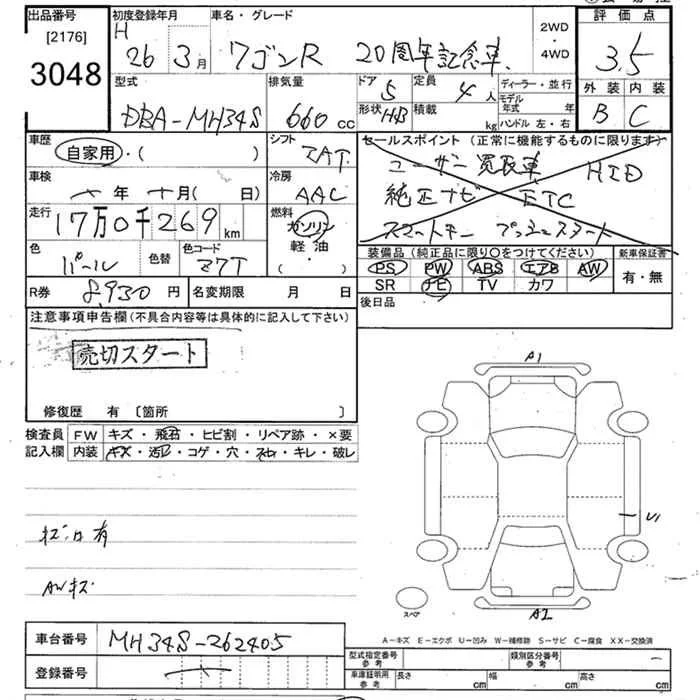 出品番号 初度登録年月 車名・グレード 2WD 評価点
[2176] H 26年 3月 ワゴンR 20周年記念車 4WD 3.5
3048
型式 排気量 ドア 定員 ディーラー・並行 外装 内装
DBA-MH34S 660cc 5 4人 モデル年式 年 B C
形状 H/B 積載 kg ハンドル 左・右
車歴 シフト セールスポイント (正常に機能するものに限ります)
自家用・( ) FAT ユーザー買取車 HID
車検 年 月( 日) 冷房 AAC 純正ナビ ETC
走行 17万0千269km 燃料 スマートキー プッシュスタート
ガソリン
軽油
・( )
色 パール 色替 色コード Z7T
装備品 (純正品に限り○をつけてください) 新車保証書
PS PW ABS エアB AW 有・無
SR ナビ TV カワ
R券 8,930円 名変期限 月 日 後日品
注意事項申告欄 (不具合内容等は具体的に記入して下さい)
売切スタート
修復歴 有 〔箇所 〕
検査員 FW キズ・飛石・ヒビ割・リペア跡・×要
記入欄 内装 キズ・汚れ・コゲ・穴・スレ・キレ・破レ
A1
U1
有
AWキズ
スペア
A2
A-キズ E-エクボ U-凹み W-補修跡 S-サビ C-腐食 XX-交換済
車台番号 MH34S-262405
登録番号
型式指定番号 参考 類別区分番号 参考
車庫証明用 参考 長さ cm 幅 cm 高さ cm